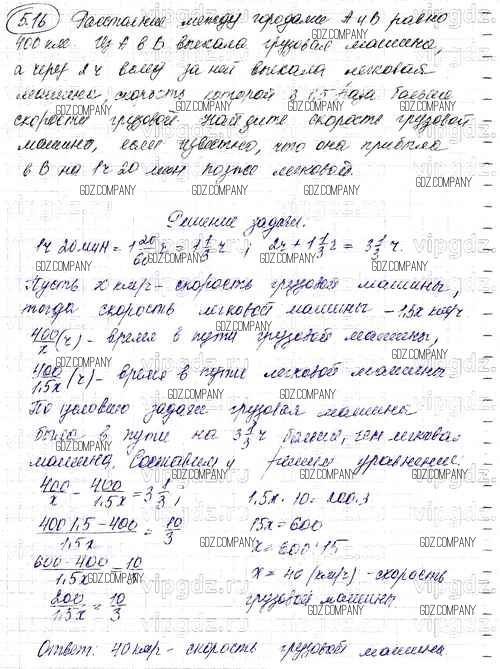 5.16 Расстояние между городами А и В равно
400 км. Из А в В выехала грузовая машина,
а через 2 ч вслед за ней выехала легковая
машина, скорость которой в 1,5 раза больше
скорости грузовой. Найдите скорость грузовой
машины, если известно, что она прибыла
в В на 1 ч 20 мин позже легковой.
Решение задачи.
1ч 20мин = 1 20/60 ч = 1 1/3 ч ; 2ч + 1 1/3 ч = 3 1/3 ч.
Пусть x км/ч - скорость грузовой машины,
тогда скорость легковой машины - 1,5x км/ч
400/x (ч) - время в пути грузовой машины,
400/1,5x (ч) - время в пути легковой машины
По условию задачи грузовая машина
была в пути на 3 1/3 ч больше, чем легковая
машина. Составим и решим уравнение:
400/x - 400/1,5x = 3 1/3 ;
400·1,5 - 400/1,5x = 10/3
600 - 400/1,5x = 10/3
200/1,5x = 10/3
1,5x · 10 = 200·3
15x = 600
x = 600 : 15
x = 40 (км/ч) - скорость
грузовой машины
Ответ: 40 км/ч - скорость грузовой машины
GDZ.COMPANY
vipgdz.ru